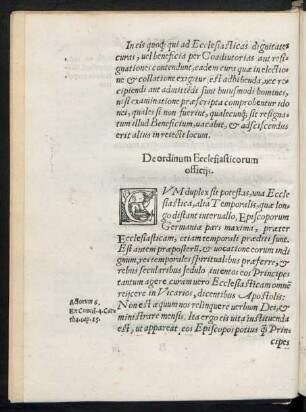 In eis quoq; qui ad Ecclesiasticas dignitates
curas, uel beneficia per Coadiutorias aut resi-
gnationes contendunt, eadem cura quæ in electio-
ne & collatione exigitur, est adhibenda, nec re-
cipiendi aut admittēdi sunt huiusmodi homines,
nisi examinatione præscripta comprobentur ido
nei, quales si non fuerint, qualecunq; sit resigna-
tum illud Beneficium, uacabit, & adsciscendus
erit alius in reiecti locum.
De ordinum Ecclesiasticorum
officijs.
CVM duplex sit potestas, una Eccle
siastica, alia Temporalis, quæ lon-
go distant interuallo, Episcoporum
Germania pars maxima, præter
Ecclesiasticam, etiam temporali præditi sunt.
Est autem præposterū, & uocatione eorum indi
gnum, res temporales spiritualibus præferre, &
rebus secularibus sedulo intentos eos Principes
tantum agere curam uero Ecclesiasticam omnē
reijcere in Vicarios, dicentibus Apostolis:
Actorum 6.
Non est æquum nos relinquere uerbum Dei, &
Ex Concil. 4. Car
ministrare mensis. Ita ergo eis uita instituenda
est, ut appareat eos Episcopos potius q̄ Prin-
cipes